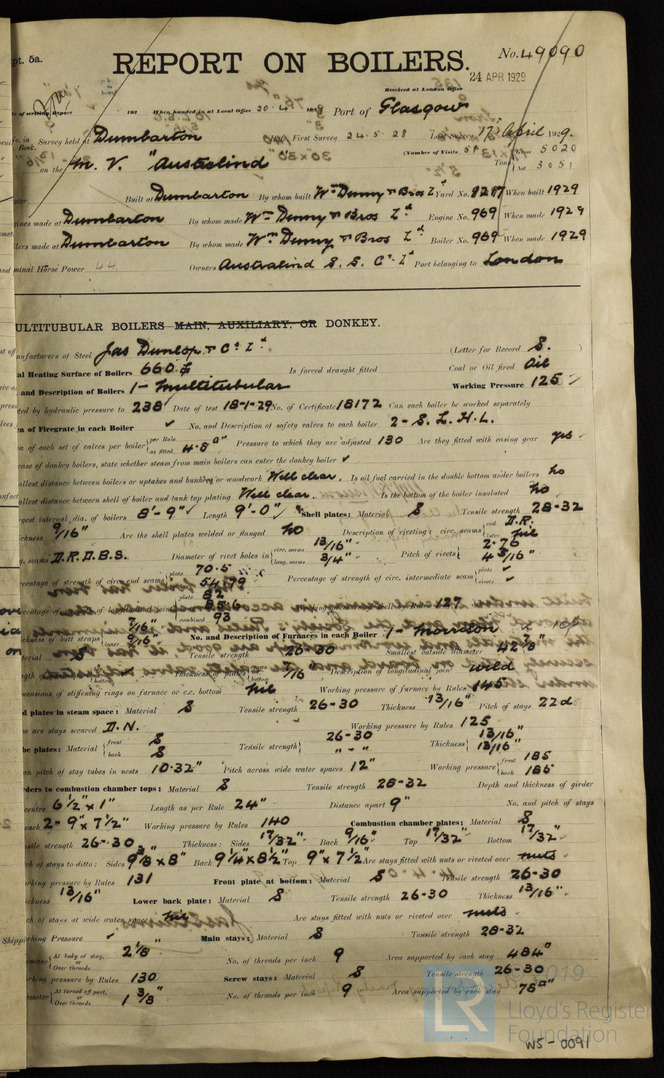 pt. 5a.
REPORT ON BOILERS.
No. 49090
Received at London Office
24 APR 1929
of writing Report 192 When handed in at Local Office 20.4.1929 Port of Glasgow
No. in Survey held at Dumbarton First Survey 24.5.28 Last Survey 17th April 1929.
Book.
on the M.V. "Australind" (Number of Visits 51 Tons 5020
3051
Built at Dumbarton By whom built Wm Denny & Bros Ld Yard No. 8297 When built 1929
gines made at Dumbarton By whom made Wm Denny & Bros Ld Engine No. 969 When made 1929
lers made at Dumbarton By whom made Wm Denny & Bros Ld Boiler No. 969 When made 1929
minal Horse Power 44 Owners Australind S. S. Co. Ld Port belonging to London
ULTITUBULAR BOILERS MAIN, AUXILIARY, OR DONKEY.
nufacturers of Steel Jas Dunlop & Co Ld (Letter for Record S. )
al Heating Surface of Boilers 660 Is forced draught fitted Coal or Oil fired Oil
and Description of Boilers 1- Multitubular Working Pressure 125
ted by hydraulic pressure to 238 Date of test 18-1-29 No. of Certificate 18172 Can each boiler be worked separately
ea of Firegrate in each Boiler ✓ No. and Description of safety valves to each boiler 2- S. L. H. L.
ea of each set of valves per boiler {per Rule as fitted 4.8" Pressure to which they are adjusted 130 Are they fitted with easing gear yes
case of donkey boilers, state whether steam from main boilers can enter the donkey boiler ✓
allest distance between boilers or uptakes and bunkers or woodwork Well clear. Is oil fuel carried in the double bottom under boilers no
allest distance between shell of boiler and tank top plating Well clear. Is the bottom of the boiler insulated no
rgest internal dia. of boilers 8'-9" Length 9'-0" Shell plates: Material S Tensile strength 28-32
ickness 9/16" Are the shell plates welded or flanged no Description of riveting: circ. seams {end D.R. inter. nil
g. seams D.R.D.B.S. Diameter of rivet holes in {circ. seams 13/16" long. seams 3/4" Pitch of rivets { 2.76 4 3/16"
rcentage of strength of circ. end seams {plate 70.5 rivets 54.79 Percentage of strength of circ. intermediate seam {plate ✓ rivets ✓
plate 82
rivets 85.6 127
combined 93
ickness of butt straps {outer 7/16" inner 9/16 No. and Description of Furnaces in each Boiler 1- Morrison
terial S Tensile strength 26-30 Smallest outside diameter 42 7/8"
Description of longitudinal joint weld
mensions of stiffening rings on furnace or c.c. bottom nil Working pressure of furnace by Rules 145
d plates in steam space: Material S Tensile strength 26-30 Thickness 13/16" Pitch of stays 22d
w are stays secured D.N. Working pressure by Rules 125
be plates: Material {front S back S Tensile strength { 26-30 " - " Thickness { 13/16" 13/16"
an pitch of stay tubes in nests 10.32" Pitch across wide water spaces 12" Working pressure {front 185 back 186
rders to combustion chamber tops: Material S Tensile strength 28-32 Depth and thickness of girder
centre 6 1/2" x 1" Length as per Rule 24" Distance apart 9" No. and pitch of stays
each 2- 9" x 7 1/2" Working pressure by Rules 140 Combustion chamber plates: Material S
nsile strength 26-30 Thickness: Sides 17/32" Back 9/16" Top 17/32" Bottom 17/32"
ch of stays to ditto: Sides 9 3/8 x 8" Back 9 1/4" x 8 1/2" Top 9" x 7 1/2" Are stays fitted with nuts or riveted over nuts
rking pressure by Rules 131 Front plate at bottom: Material S Tensile strength 26-30
ickness 13/16" Lower back plate: Material S Tensile strength 26-30 Thickness 13/16"
ch of stays at wide water space nil Are stays fitted with nuts or riveted over nuts
Working Pressure ✓ Main stays: Material S Tensile strength 28-32
ameter {At body of stay, or Over threads 2 1/8" No. of threads per inch 9 Area supported by each stay 484"
rking pressure by Rules 130 Screw stays: Material S Tensile strength 26-30
ameter {At turned off part, or Over threads 1 3/8" No. of threads per inch 9 Area supported by each stay 78"
2019
LR Lloyd's Register
Foundation
W5-0091